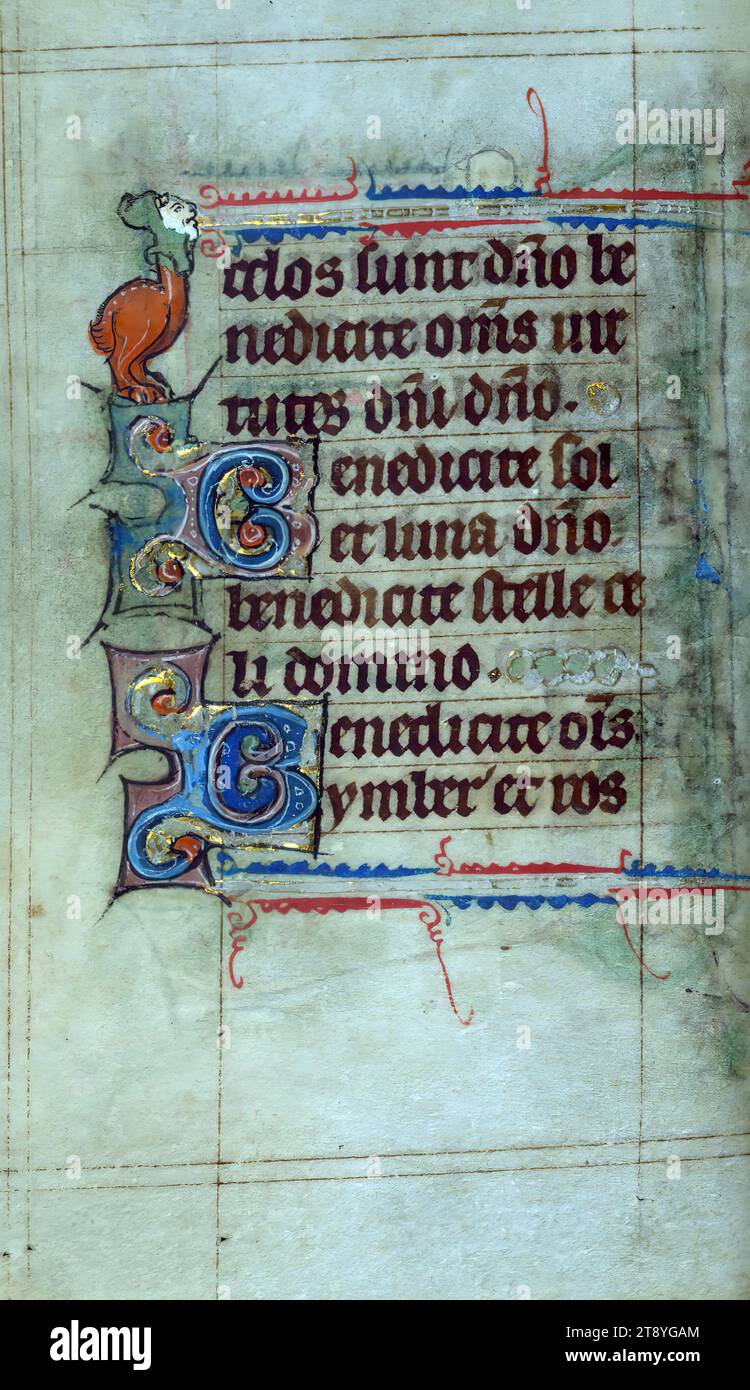 celos sunt dño be
nedicite om̄s uir
tutes dñi dño.
Benedicite sol
et luna dño.
benedicite stelle ce
li domino.
Benedicite oīs
ymber et ros
alamy
Image ID: 2T8YGAM
www.alamy.com